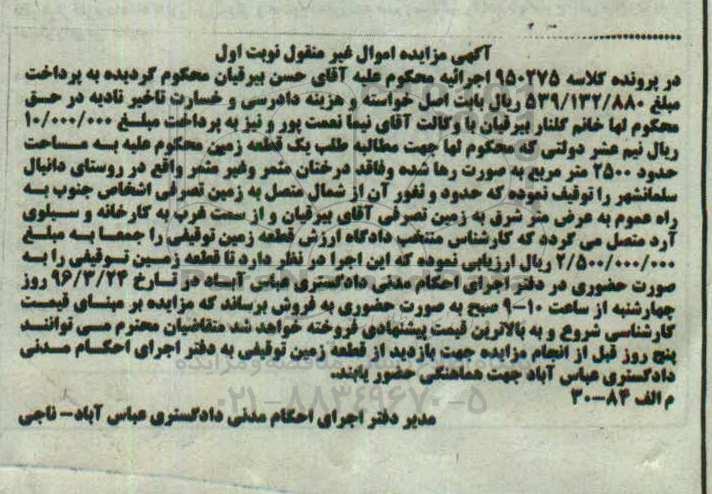 آگهی مزایده اموال غیر منقول نوبت اول
در پرونده کلاسه ۹۵۰۲۷۵ اجرائیه محکوم علیه آقای حسن بیرقیان محکوم گردیده به پرداخت
مبلغ ۵۳۹/۱۳۲/۸۸۰ ریال بابت اصل خواسته و هزینه دادرسی و خسارت تاخیر تادیه در حق
محکوم لها خانم گلنار بیرقیان با وکالت آقای نیما نعمت پور و نیز به پرداخت مبلغ ۱۰/۰۰۰/۰۰۰
ریال نیم عشر دولتی که محکوم لها جهت مطالبه طلب یک قطعه زمین محکوم علیه به مساحت
حدود ۲۵۰۰ متر مربع به صورت رها شده وفاقد درختان مثمر وغیر مثمر واقع در روستای دانیال
سلمانشهر را توقیف نموده که حدود و ثغور آن از شمال متصل به زمین تصرفی اشخاص جنوب به
راه عموم به عرض متر شرق به زمین تصرفی آقای بیرقیان و از سمت غرب به کارخانه و سیلوی
آرد متصل می گردد که کارشناس منتخب دادگاه ارزش قطعه زمین توقیفی را جمعا به مبلغ
۲/۵۰۰/۰۰۰/۰۰۰ ریال ارزیابی نموده که این اجرا در نظر دارد تا قطعه زمین توقیفی را به
صورت حضوری در دفتر اجرای احکام مدنی دادگستری عباس آباد در تارخ ۹۶/۳/۲۴ روز
چهارشنبه از ساعت ۱۰-۹ صبح به صورت حضوری به فروش برساند که مزایده بر مبنای قیمت
کارشناسی شروع و به بالاترین قیمت پیشنهادی فروخته خواهد شد متقاضیان محترم می توانند
پنج روز قبل از انجام مزایده جهت بازدید از قطعه زمین توقیفی به دفتر اجرای احکام مدنی
دادگستری عباس آباد جهت هماهنگی حضور یابند.
م الف ۸۴-۳۰
مدیر دفتر اجرای احکام مدنی دادگستری عباس آباد- ناجی
۰۲۱-۸۸۳۴۹۶۷۰-۵